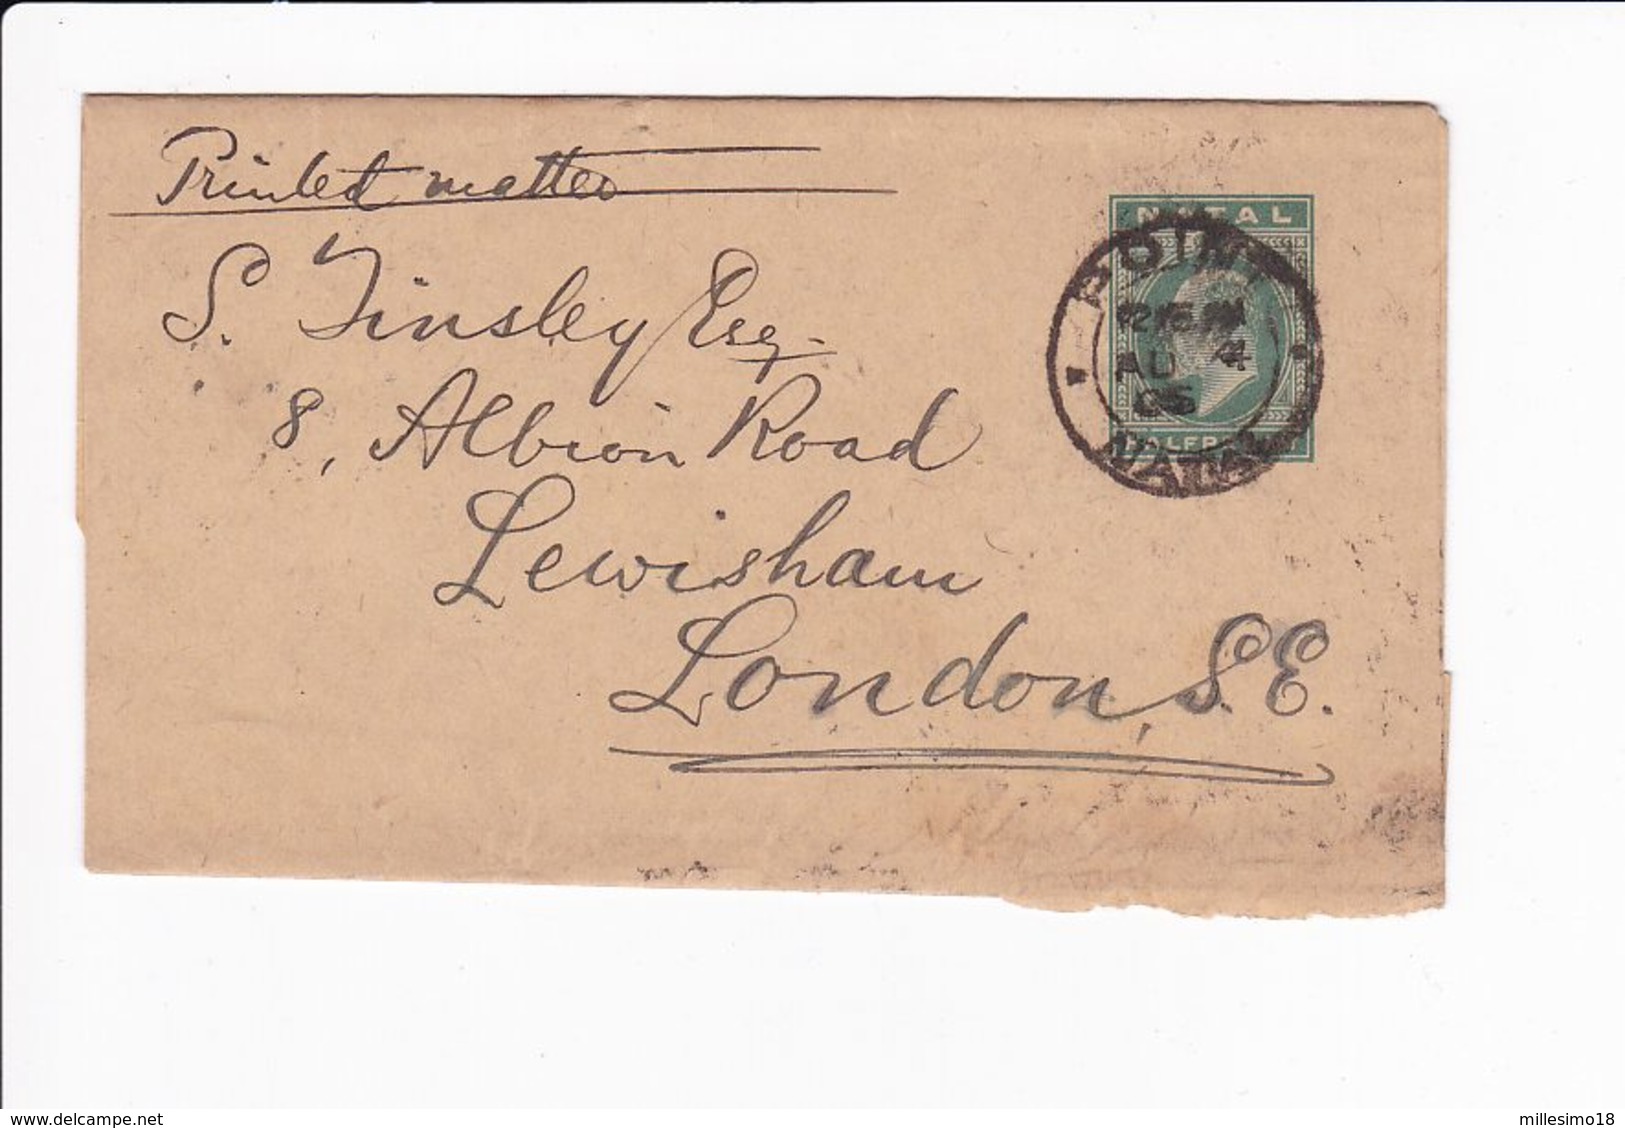 Printed matter
S. Tinsley Esq.
8, Albion Road
Lewisham
London, S.E.
NATAL
HALFPENNY
POINT
AU 4
05
NATAL
www.delcampe.net
millesimo18